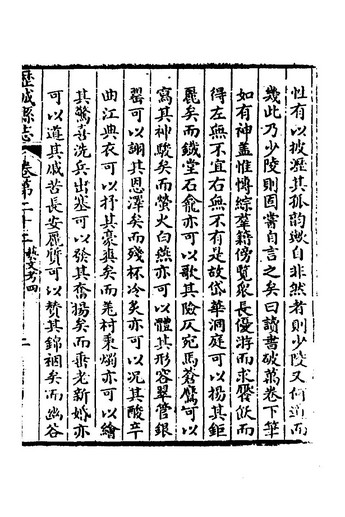 性有以披瀝其孤韵歟自非然者則少陵又何道而
幾此乃少陵則固嘗自言之矣曰讀書破萬卷下筆
如有神蓋惟博綜羣籍傍覧衆長優游而求饜飫而
得左無不宜右無不有是故岱華洞庭可以揚其鉅
麗矣而鐵堂石龕亦可以歌其險仄宛馬蒼鷹可以
寫其神駿矣而螢火白燕亦可以體其形容翠管銀
罌可以詡其恩澤矣而殘杯冷炙亦可以沉其酸辛
曲江典衣可以抒其豪爽矣而羗村秉燭亦可以繪
其驚喜洗兵出塞可以發其奮揚矣而垂老新婚亦
可以道其戚苦長安麗質可以賛其錦裀矣而幽谷
歷城縣志 卷第二十二 藝文考四 二